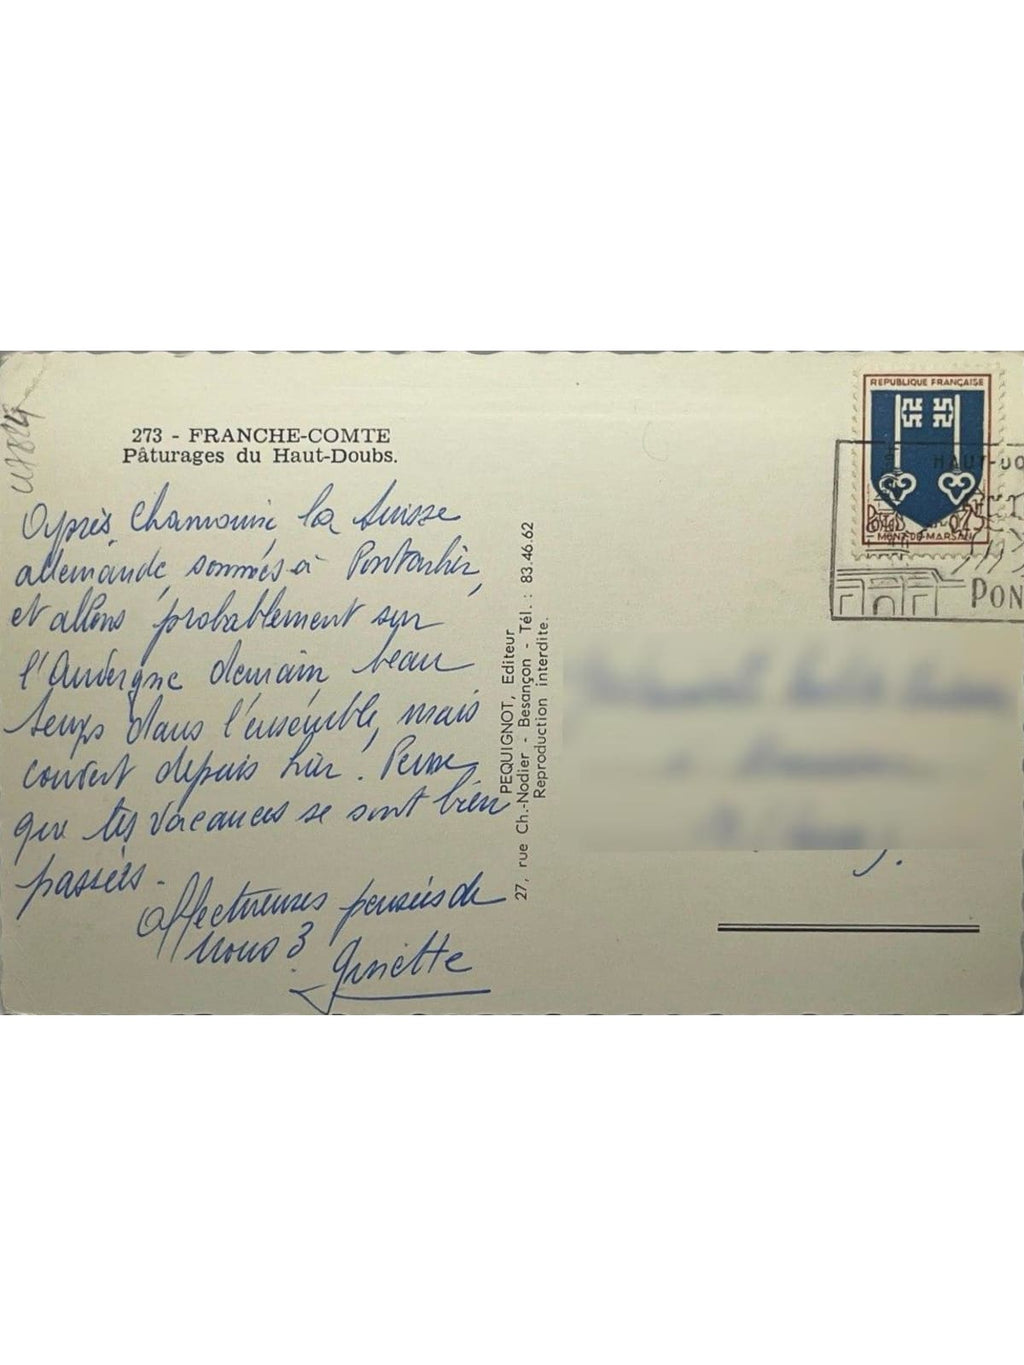 273 - FRANCHE-COMTE
Pâturages du Haut-Doubs.
Après Chamonix, la Suisse
allemande, sommes à Pontarlier,
et allons probablement sur
l'Auvergne demain beau
temps dans l'ensemble, mais
couvert depuis hier. Pense
que tes vacances se sont bien
passées.
Affectueuses pensées de
nous 3.
Ginette
PEQUIGNOT, Editeur
27, rue Ch.-Nodier - Besançon - Tél. : 83.46.62
Reproduction interdite.
REPUBLIQUE FRANÇAISE
POSTES 0,05
MONT-DE-MARSAN
HAUT-DO
PON